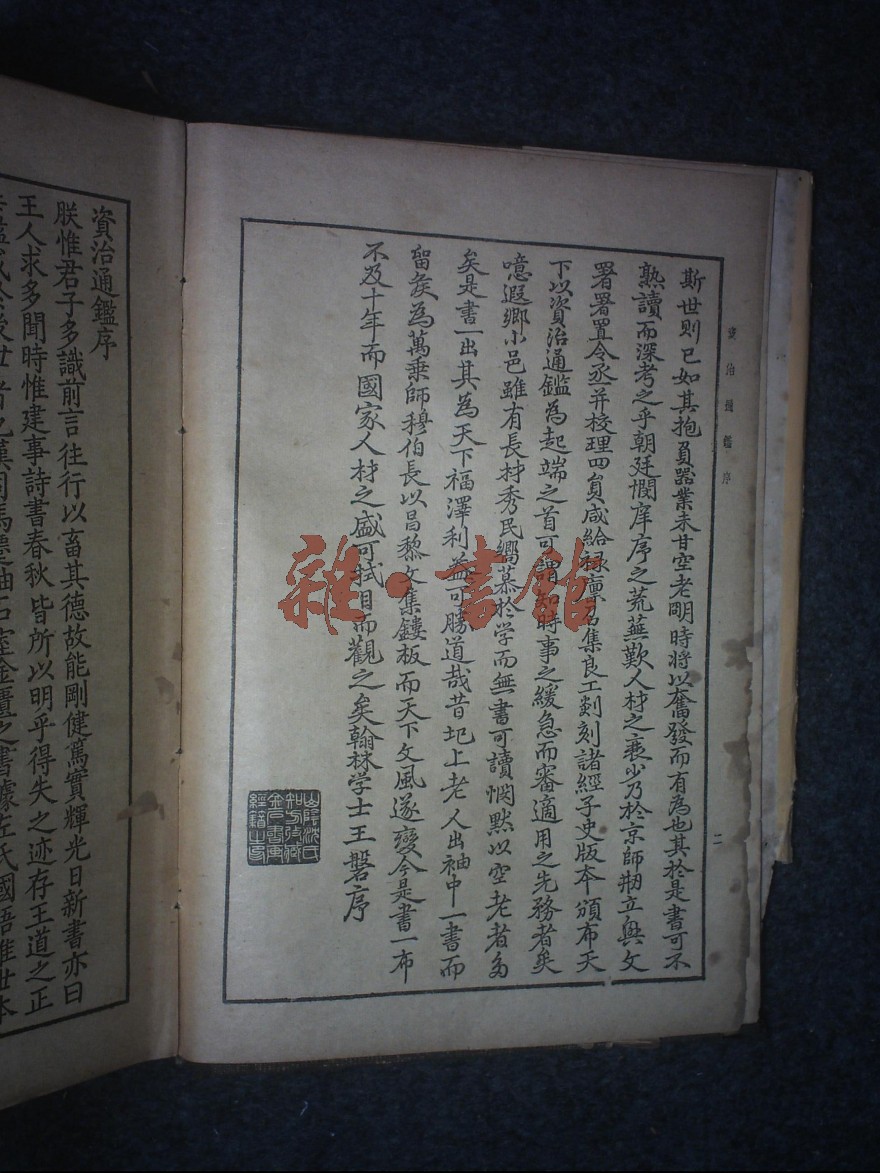 資治通鑑序
二
斯世則已如其抱負器業未甘空老明時將以奮發而有為也其於是書可不
熟讀而深考之乎朝廷憫庠序之荒蕪歎人材之衰少乃於京師刱立興文
署署置令丞并校理四員咸給禄廪召集良工剡刻諸經子史版本頒布天
下以資治通鑑為起端之首可謂知時事之緩急而審適用之先務者矣
噫遐鄉小邑雖有長材秀民嚮慕於学而無書可讀惘默以空老者多
矣是書一出其為天下福澤利益可勝道哉昔圯上老人出袖中一書而
留矦為萬乗師穆伯長以昌黎文集鏤板而天下文風遂變今是書一布
不及十年而國家人材之盛可拭目而觀之矣翰林学士王磐序
雜·書館
資治通鑑序
朕惟君子多識前言往行以畜其德故能剛健篤實輝光日新書亦曰
王人求多聞時惟建事詩書春秋皆所以明乎得失之迹存王道之正